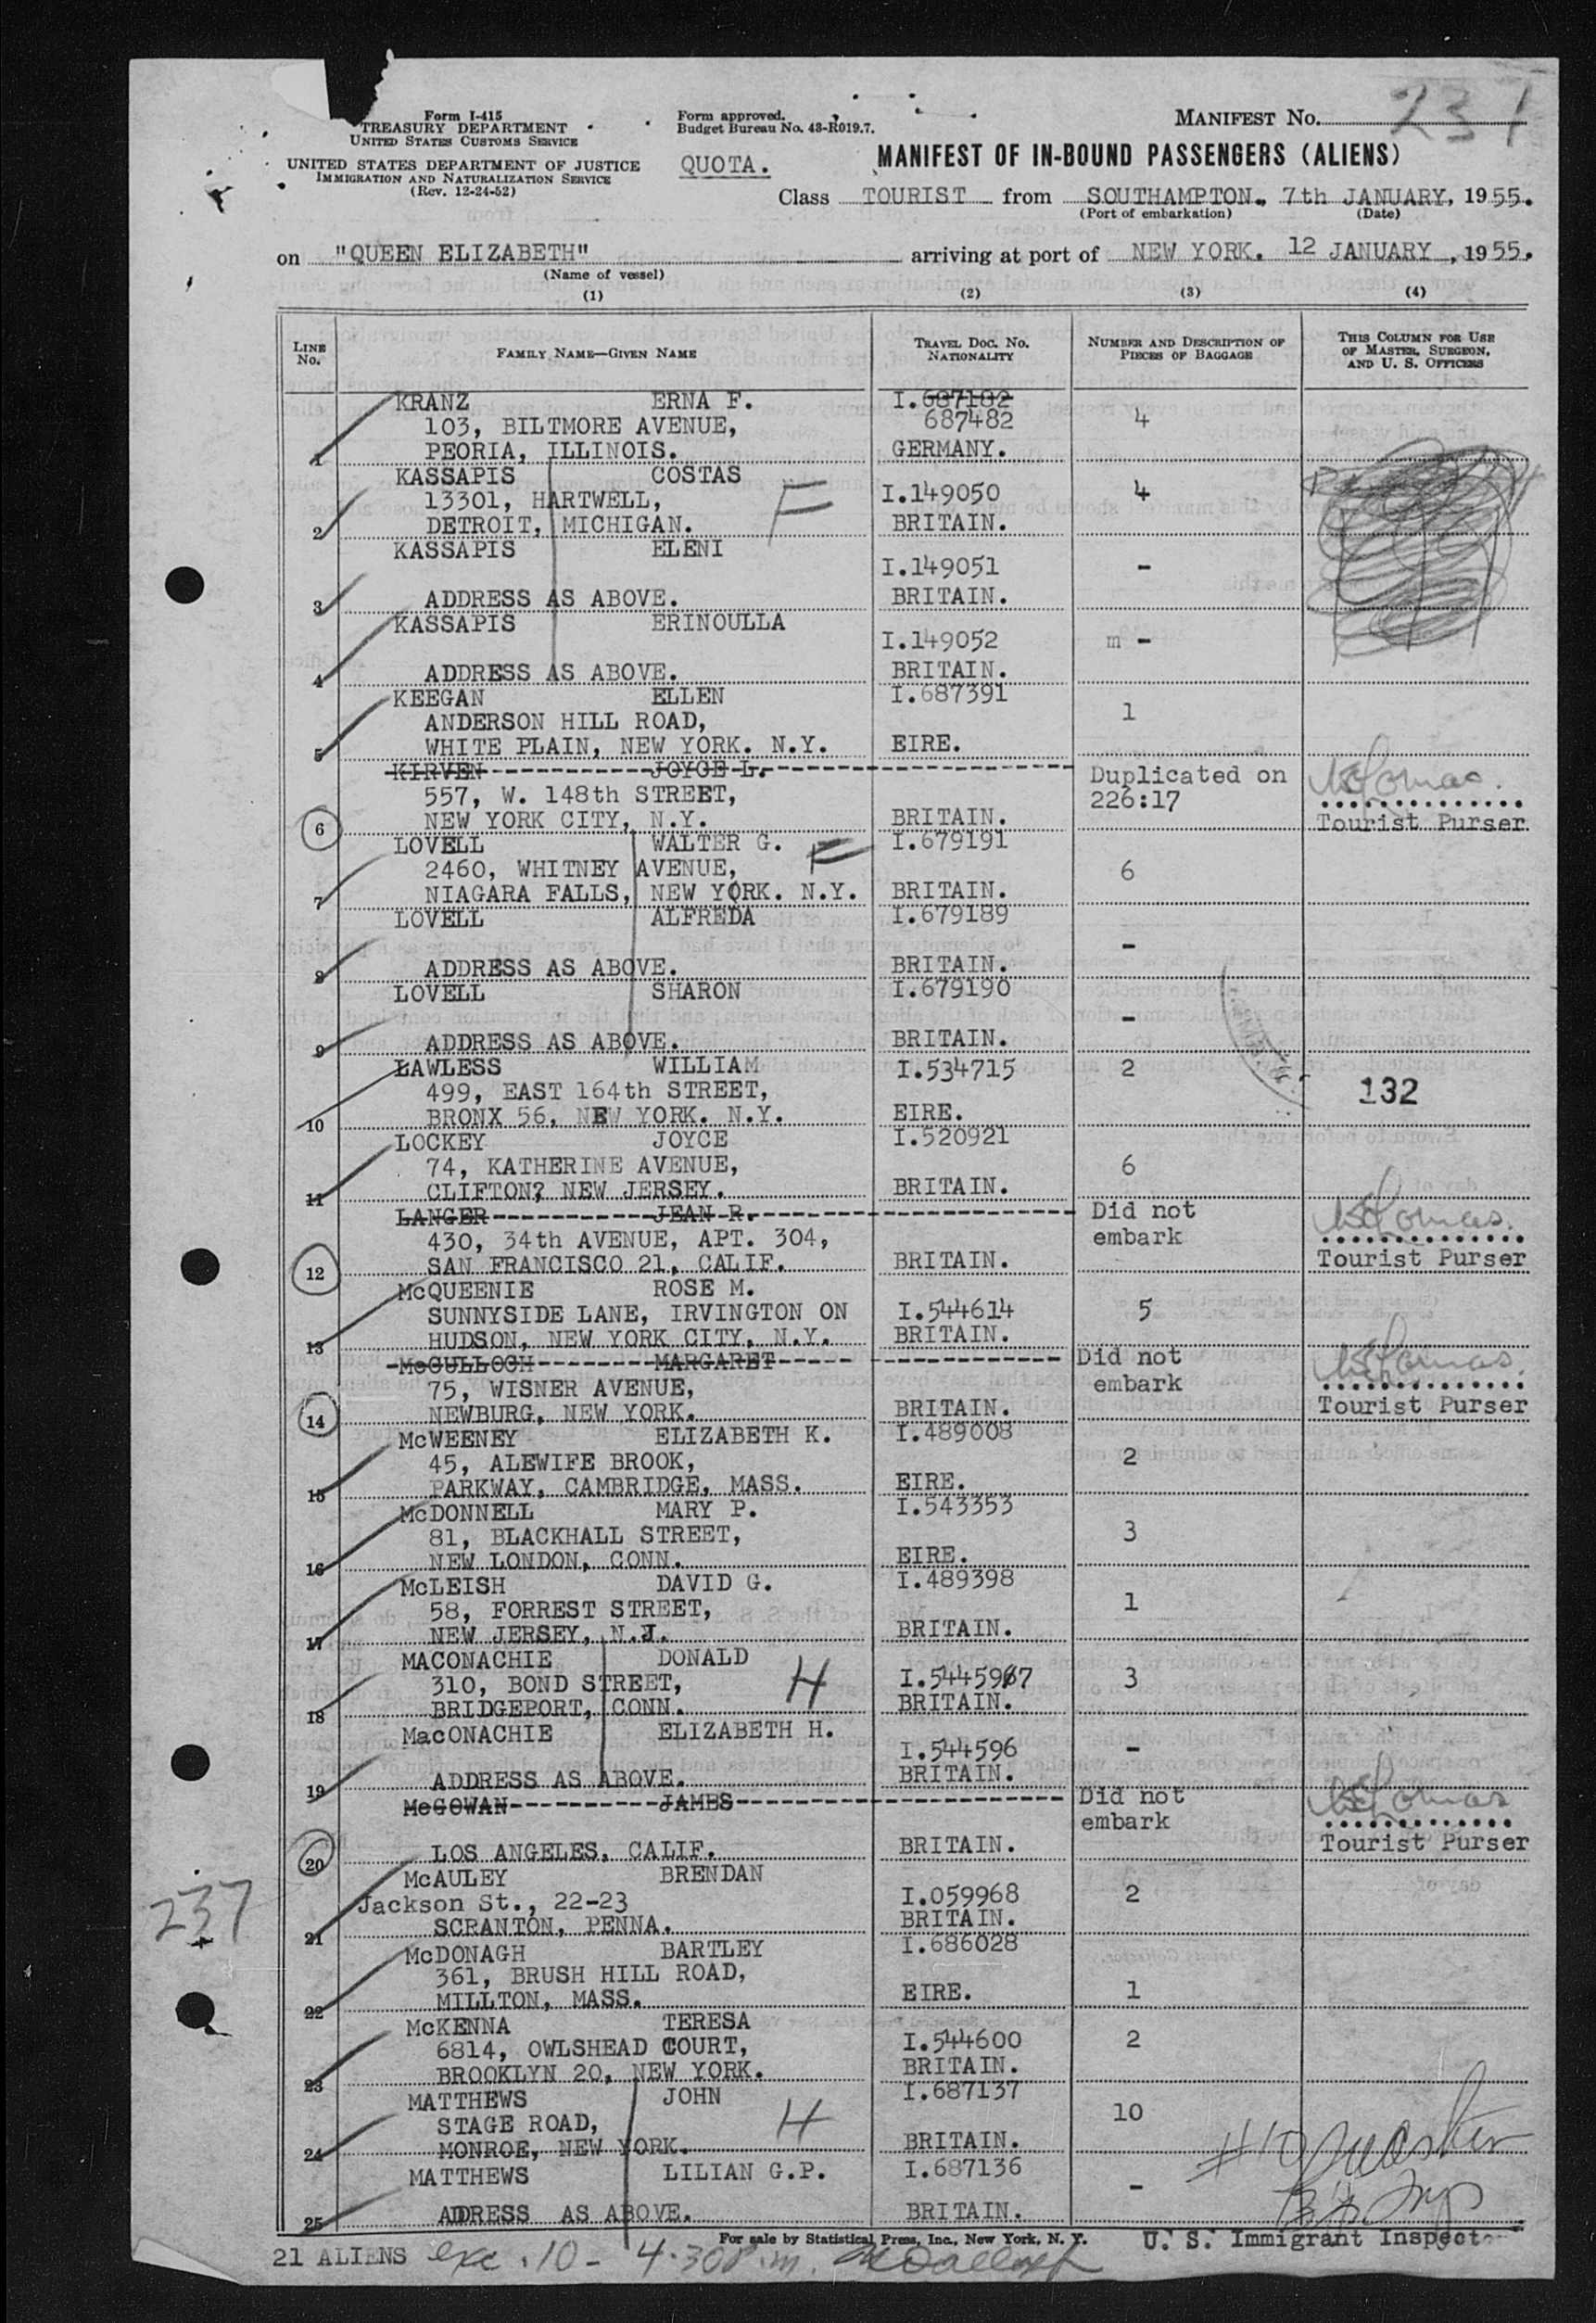 Form I-415
TREASURY DEPARTMENT
UNITED STATES CUSTOMS SERVICE
UNITED STATES DEPARTMENT OF JUSTICE
IMMIGRATION AND NATURALIZATION SERVICE
(Rev. 12-24-52)
Form approved.
Budget Bureau No. 43-R019.7.
QUOTA.
MANIFEST NO. 237
MANIFEST OF IN-BOUND PASSENGERS (ALIENS)
Class TOURIST from SOUTHAMPTON, 7th JANUARY, 1955.
(Port of embarkation) (Date)
on "QUEEN ELIZABETH" arriving at port of NEW YORK. 12 JANUARY, 1955.
(Name of vessel)
(1) (2) (3) (4)
LINE NO. FAMILY NAME—GIVEN NAME TRAVEL DOC. NO. NATIONALITY NUMBER AND DESCRIPTION OF PIECES OF BAGGAGE THIS COLUMN FOR USE OF MASTER, SURGEON, AND U. S. OFFICERS
KRANZ ERNA F. I.687182
103, BILTMORE AVENUE, 687482 4
1 PEORIA, ILLINOIS. GERMANY.
KASSAPIS COSTAS
13301, HARTWELL, F I.149050 4
2 DETROIT, MICHIGAN. BRITAIN.
KASSAPIS ELENI
I.149051 -
3 ADDRESS AS ABOVE. BRITAIN.
KASSAPIS ERINOULLA
I.149052 m -
4 ADDRESS AS ABOVE. BRITAIN.
KEEGAN ELLEN I.687391
ANDERSON HILL ROAD, 1
5 WHITE PLAIN, NEW YORK. N.Y. EIRE.
KIRVEN JOYCE L. Duplicated on
557, W. 148th STREET, 226:17
6 NEW YORK CITY, N.Y. BRITAIN. Tourist Purser
LOVELL WALTER G. F I.679191
2460, WHITNEY AVENUE, 6
7 NIAGARA FALLS, NEW YORK. N.Y. BRITAIN.
LOVELL ALFREDA I.679189
-
8 ADDRESS AS ABOVE. BRITAIN.
LOVELL SHARON I.679190
-
9 ADDRESS AS ABOVE. BRITAIN.
LAWLESS WILLIAM I.534715 2
499, EAST 164th STREET, 132
10 BRONX 56, NEW YORK. N.Y. EIRE.
LOCKEY JOYCE I.520921
74, KATHERINE AVENUE, 6
11 CLIFTON? NEW JERSEY. BRITAIN.
LANGER JEAN R. Did not
430, 34th AVENUE, APT. 304, embark
12 SAN FRANCISCO 21, CALIF. BRITAIN. Tourist Purser
McQUEENIE ROSE M.
SUNNYSIDE LANE, IRVINGTON ON I.544614 5
13 HUDSON, NEW YORK CITY, N.Y. BRITAIN.
McCULLOCH MARGARET Did not
75, WISNER AVENUE, embark
14 NEWBURG, NEW YORK. BRITAIN. Tourist Purser
McWEENEY ELIZABETH K. I.489008
45, ALEWIFE BROOK, 2
15 PARKWAY, CAMBRIDGE, MASS. EIRE.
McDONNELL MARY P. I.543353
81, BLACKHALL STREET, 3
16 NEW LONDON, CONN. EIRE.
McLEISH DAVID G. I.489398
58, FORREST STREET, 1
17 NEW JERSEY, N.J. BRITAIN.
MACONACHIE DONALD
310, BOND STREET, H I.544597 3
18 BRIDGEPORT, CONN. BRITAIN.
MacONACHIE ELIZABETH H.
I.544596 -
19 ADDRESS AS ABOVE. BRITAIN.
McGOWAN JAMES Did not
embark
20 LOS ANGELES, CALIF. BRITAIN. Tourist Purser
McAULEY BRENDAN
Jackson St., 22-23 I.059968 2
21 SCRANTON, PENNA. BRITAIN.
237
McDONAGH BARTLEY I.686028
361, BRUSH HILL ROAD,
22 MILLTON, MASS. EIRE. 1
McKENNA TERESA
6814, OWLSHEAD COURT, I.544600 2
23 BROOKLYN 20, NEW YORK. BRITAIN.
MATTHEWS JOHN I.687137
STAGE ROAD, H 10
24 MONROE, NEW YORK. BRITAIN.
MATTHEWS LILIAN G.P. I.687136
-
25 ADDRESS AS ABOVE. BRITAIN.
For sale by Statistical Press, Inc., New York, N. Y.
U. S. Immigrant Inspector
21 ALIENS exc. 10 - 4.30 p.m.